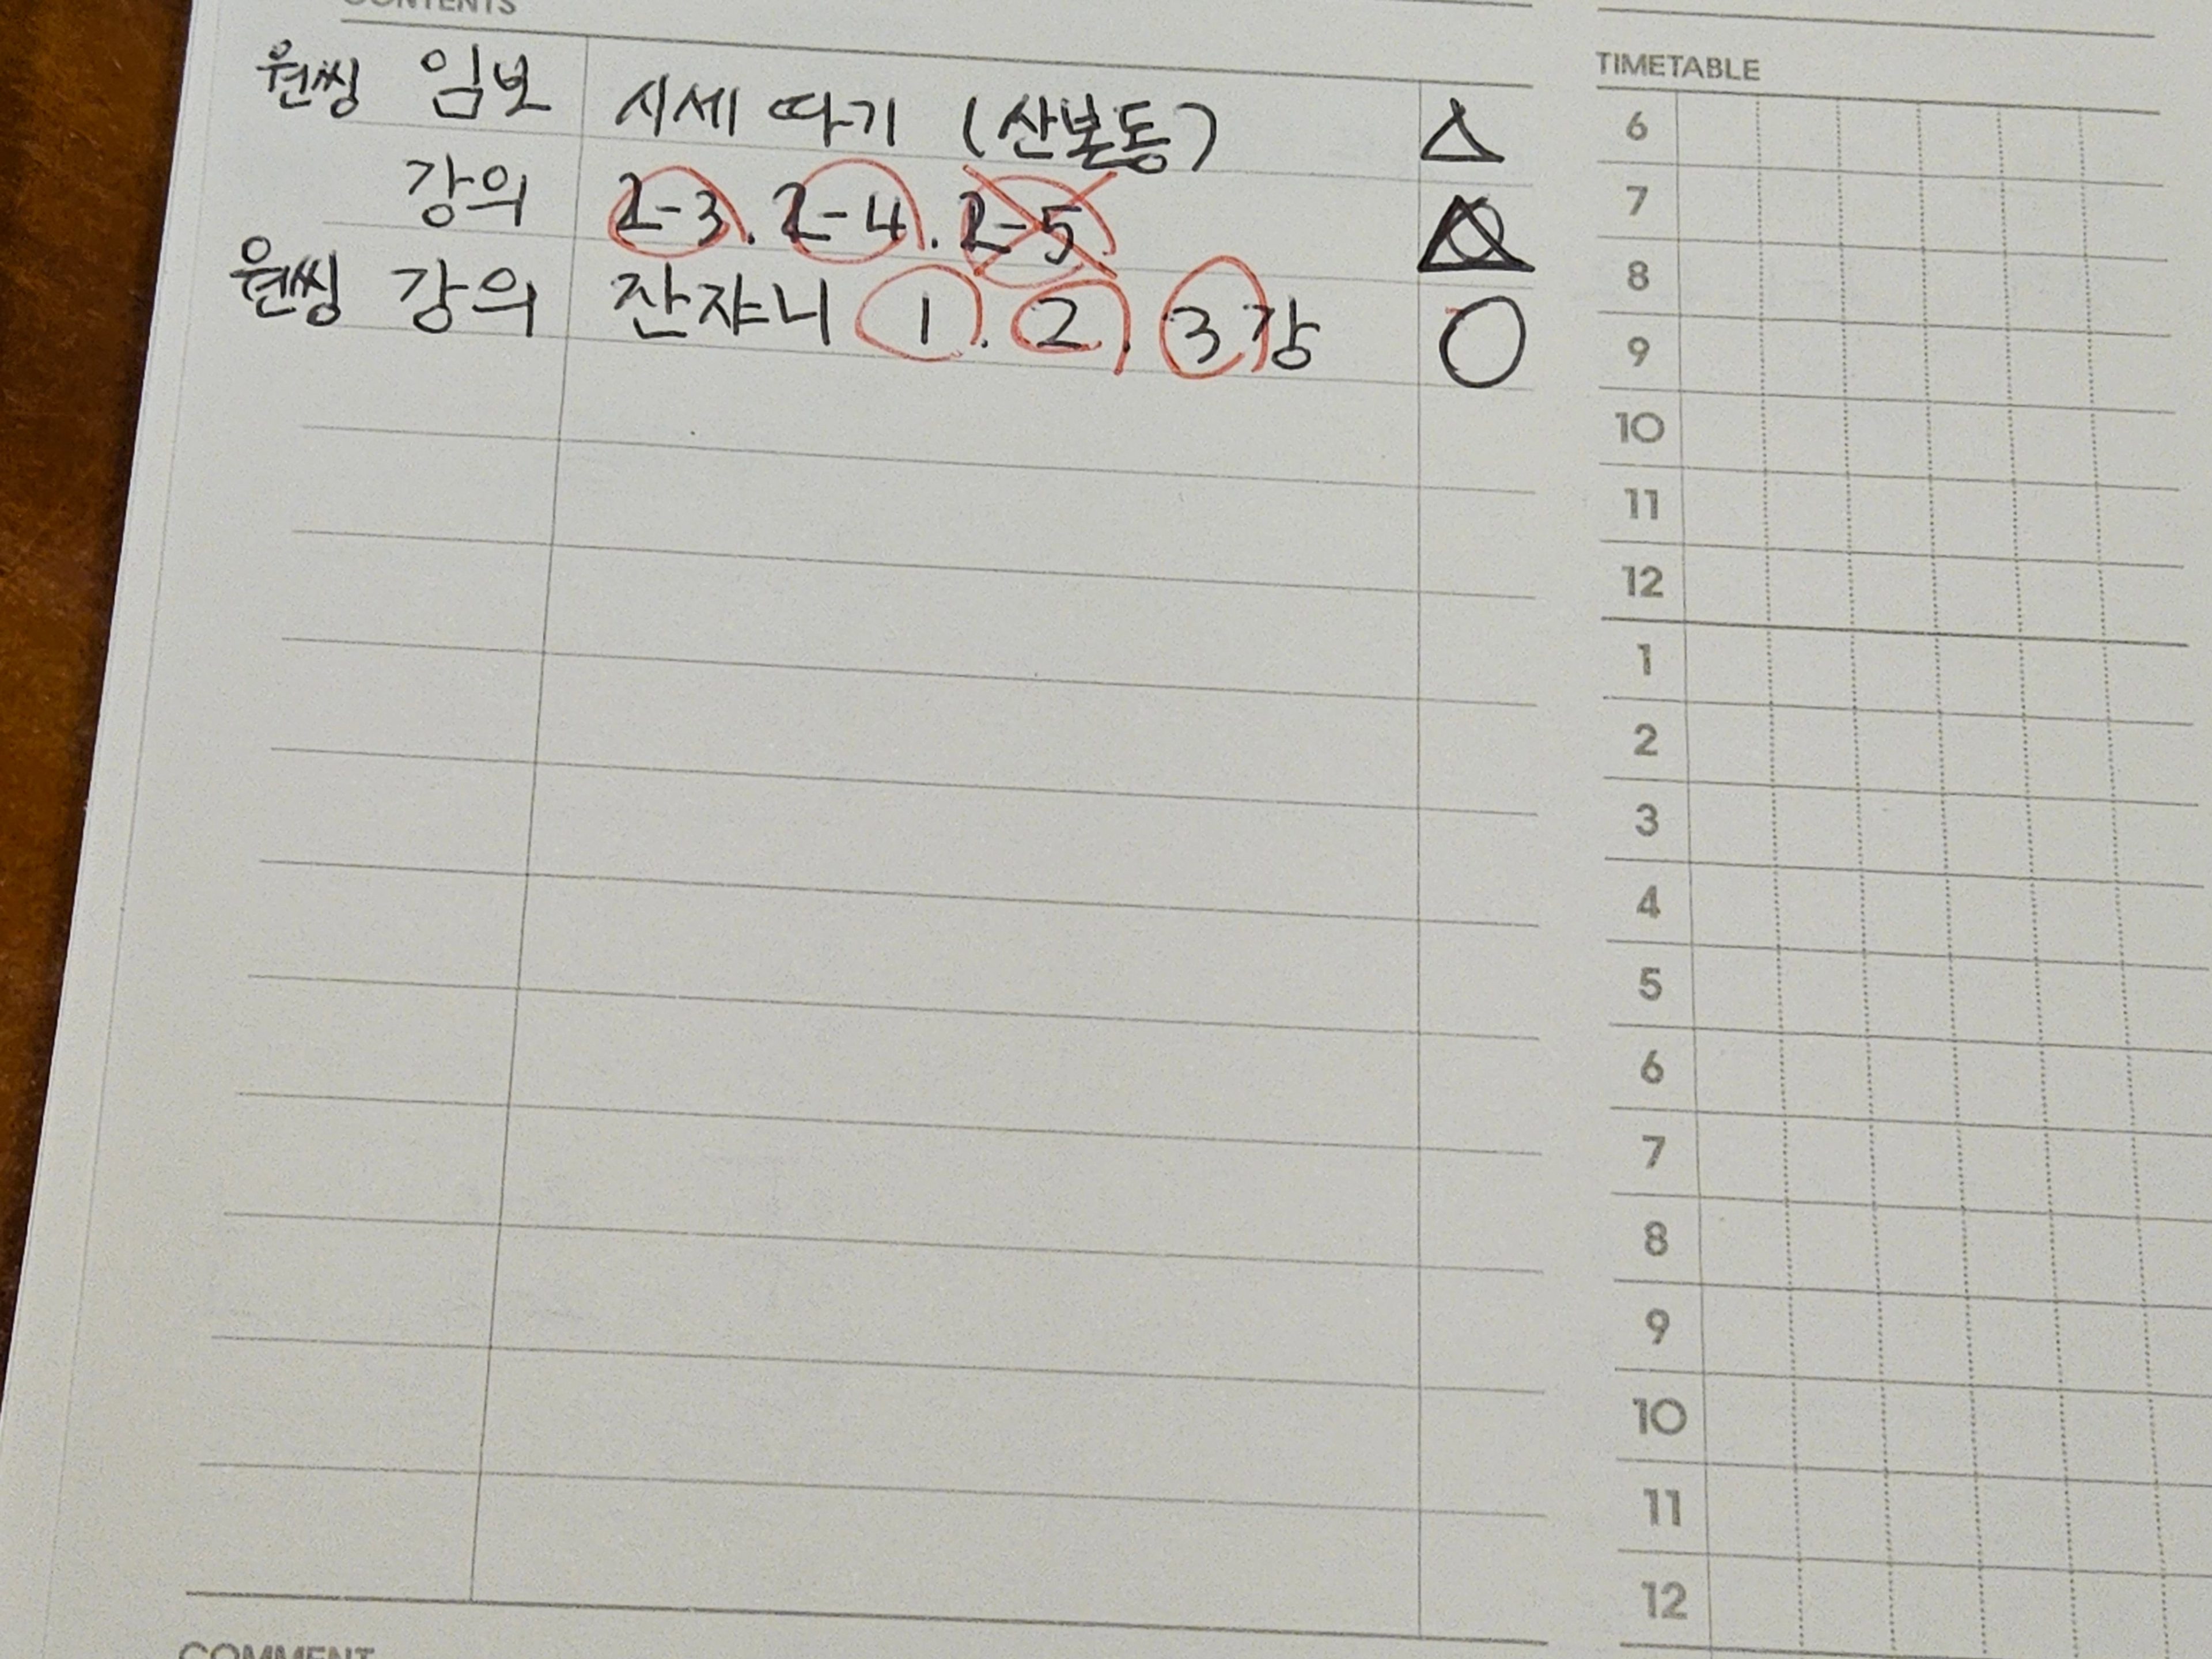 CONTENTS
원씽 임보 시세 따기 (산본동) △
강의 2-3. 2-4. 2-5.
원씽 강의 잔쟈니 1. 2. 3강 ○
TIMETABLE
6
7
8
9
10
11
12
1
2
3
4
5
6
7
8
9
10
11
12
COMMENT